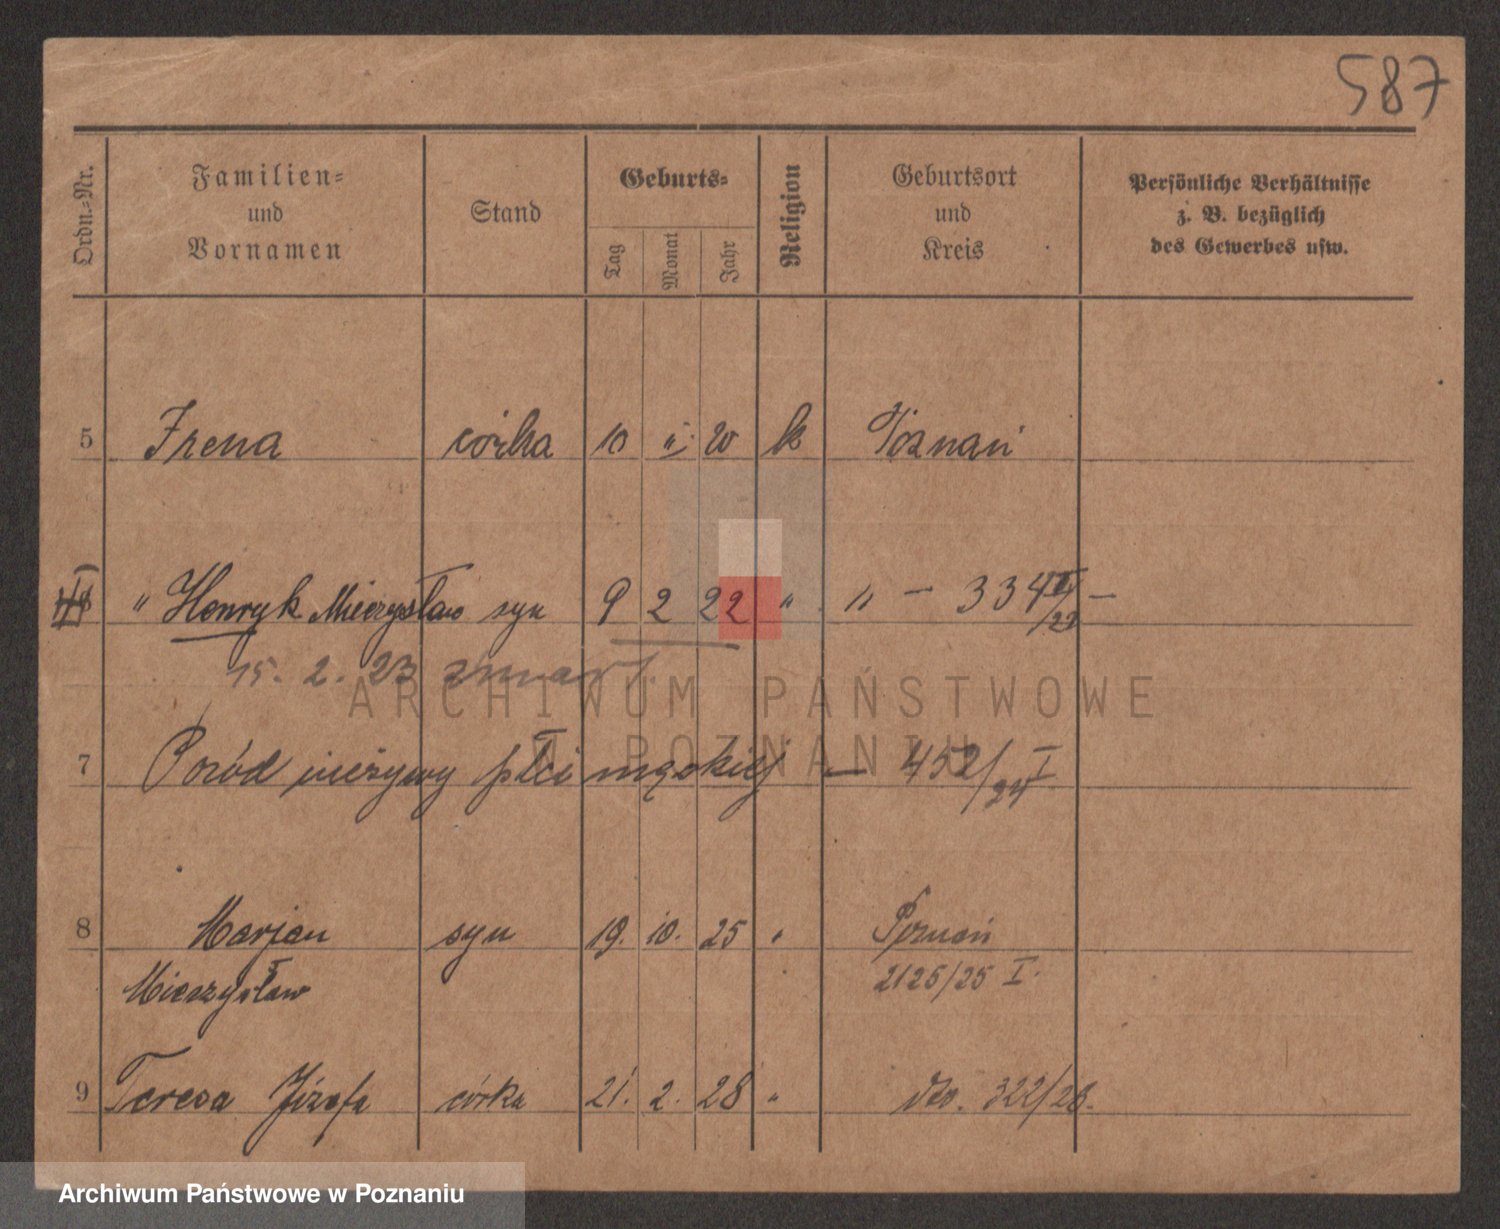 587
Ordn.-Nr.
Familien-
und
Vornamen
Stand
Geburts-
Tag
Monat
Jahr
Religion
Geburtsort
und
Kreis
Persönliche Verhältnisse
z. B. bezüglich
des Gewerbes usw.
5 Irena córka 10 20 k Poznań
" Henryk Mieczysław syn 9 2 22 " " — 334 II/22 —
15. 2. 23 zmarł.
7 Poród nieżywy płci męskiej — 452/24 I
8 Marjan syn 19. 10. 25 " Poznań
Mieczysław 2125/25 I.
9 Teresa Józefa córka 21. 2. 28 " dto. 322/28.
ARCHIWUM PAŃSTWOWE
W POZNANIU
Archiwum Państwowe w Poznaniu